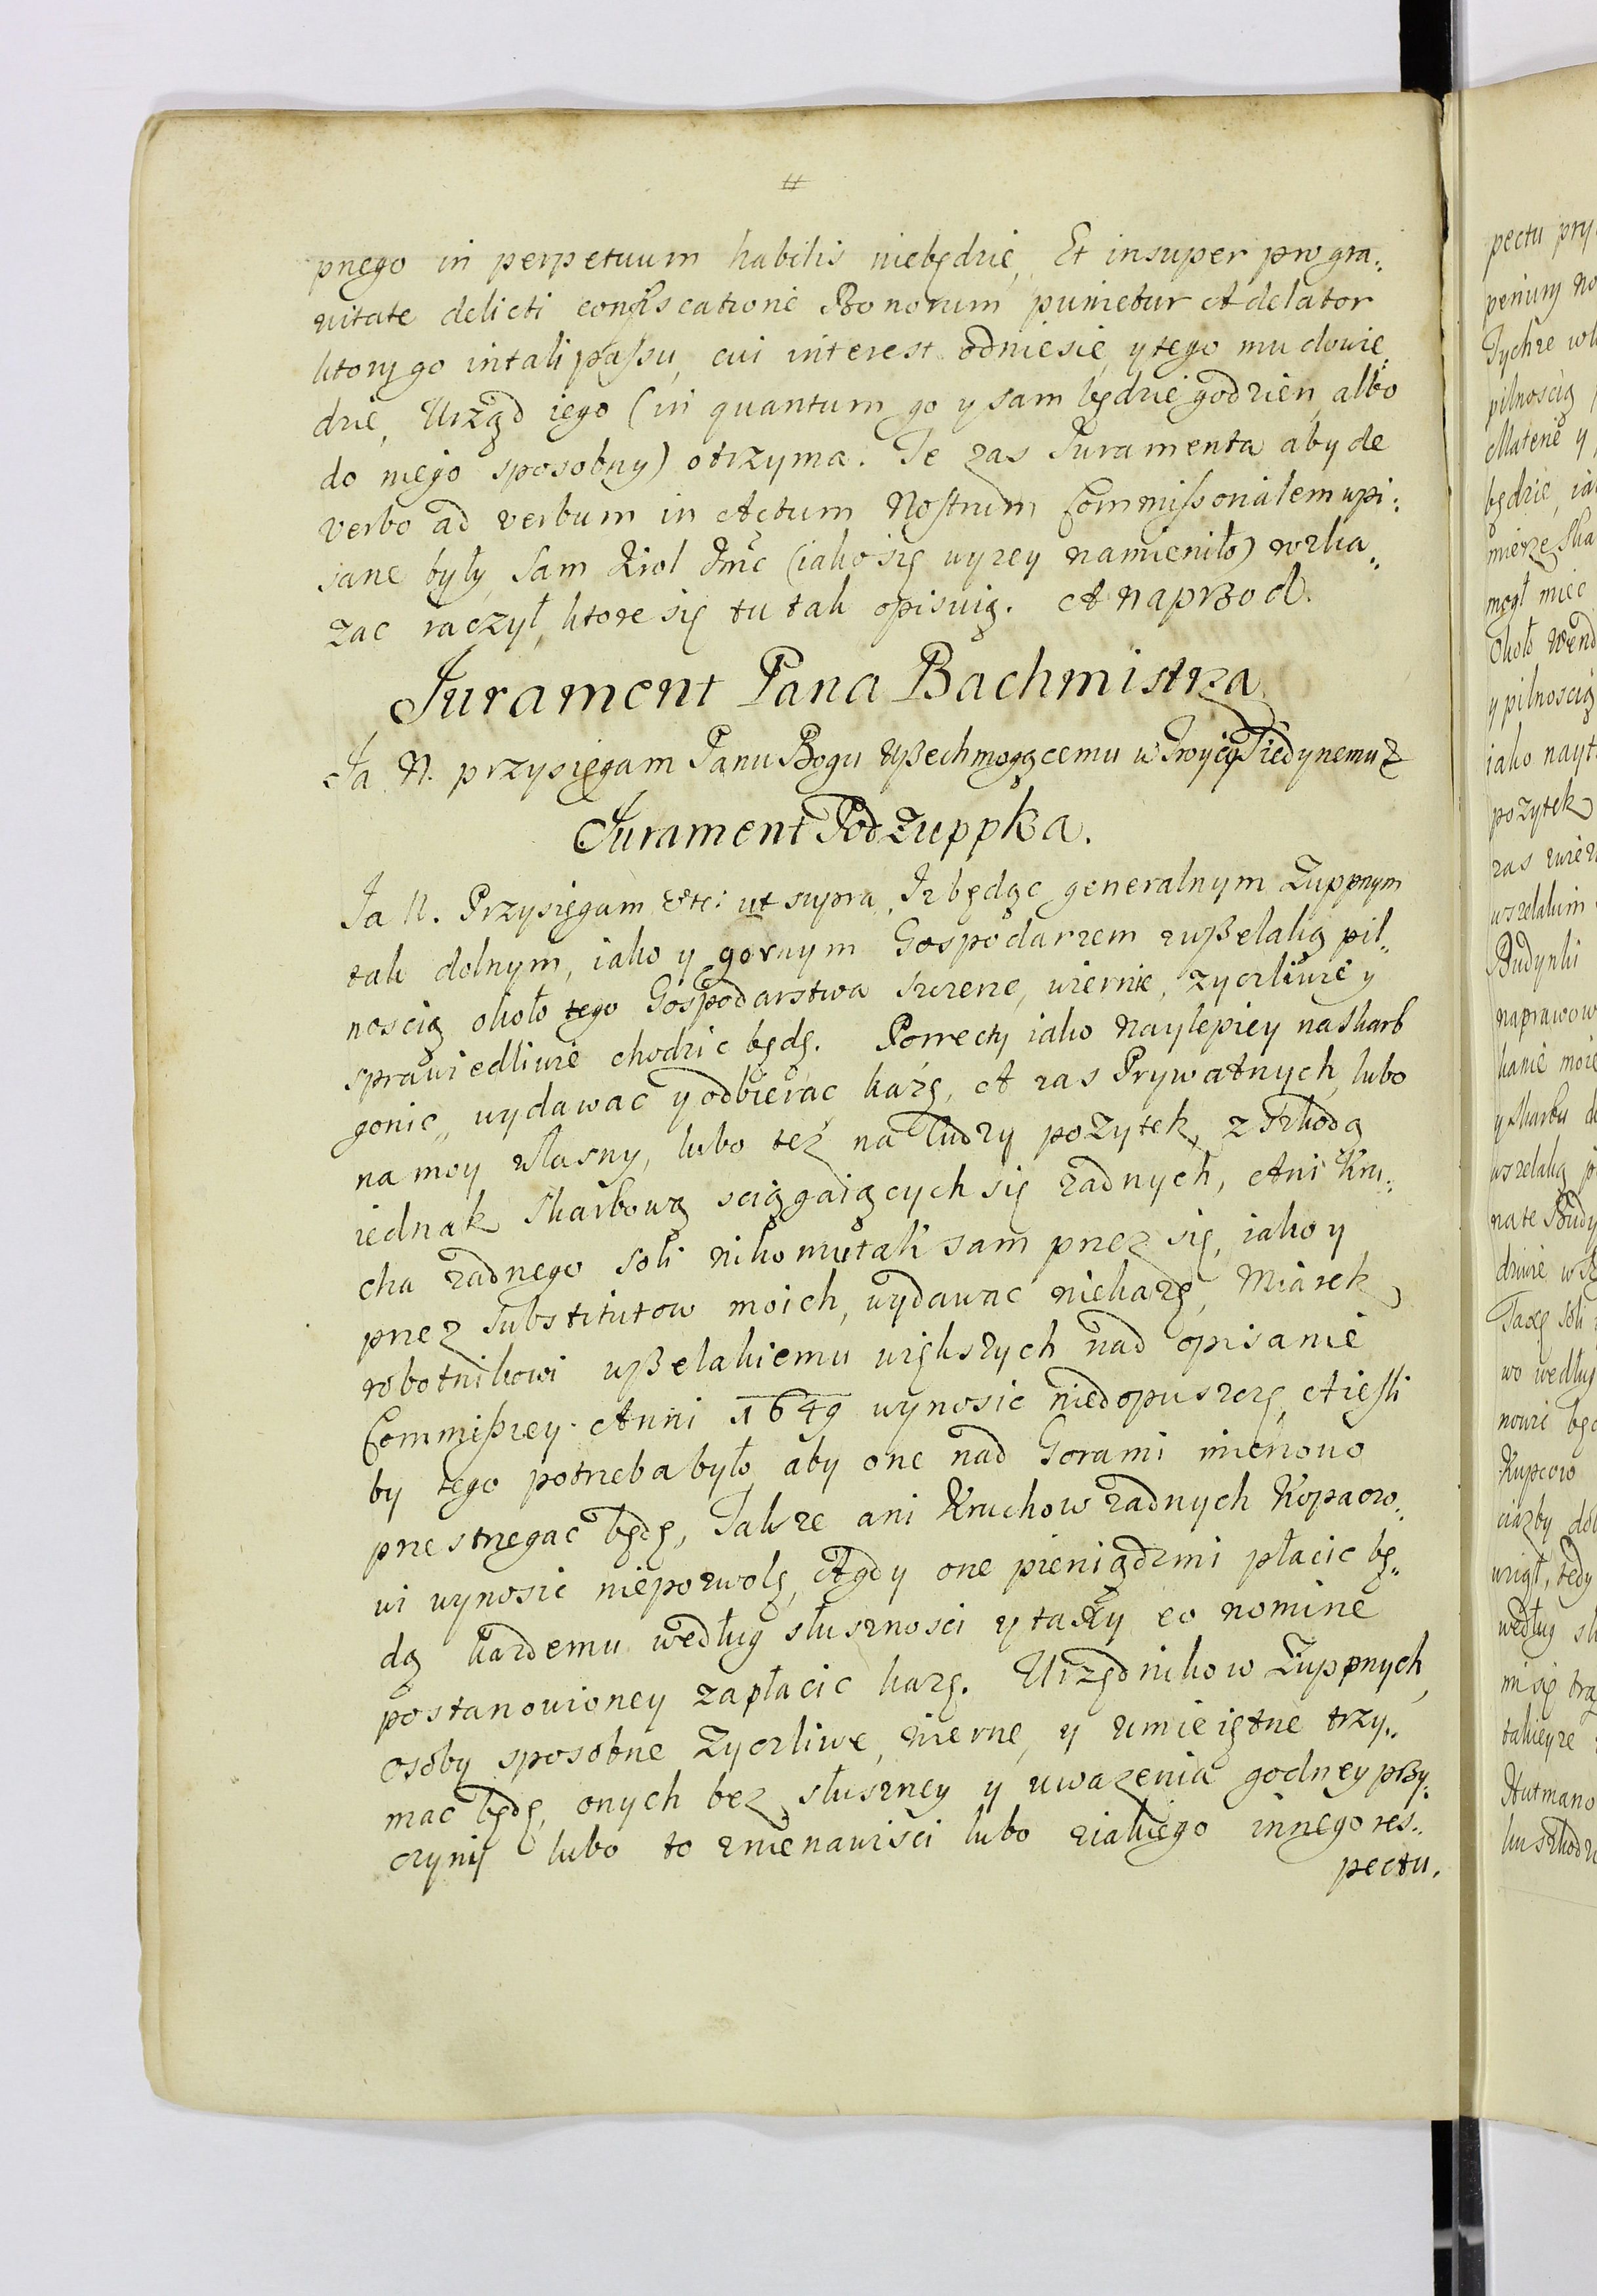 #
pnego in perpetuum habilis niebędzie, Et insuper pro gra„
vitate delicti confiscatione Bonorum punietur A delator
ktory go in tali passu, cui interest odniesie, y tego mu dowie„
dzie, Urząd iego (in quantum go y sam będzie godzien, albo
do niego sposobny) otrzyma. Te zas Juramenta aby de
verbo ad verbum in Actum Nostrum Commissorialem wpi„
sane były, Sam Krol Jmc (iako się wyzey namieniło) wzka„
zac raczył, ktore się tu tak opisuią. A naprzod.
Jurament Pana Bachmistrza
Ja N. przysięgam Panu Bogu Wßechmogącemu w Troycy S. iedynemu &
Jurament Podzuppka.
Ja N. Przysięgam etc: ut supra, Iz będąc generalnym Zuppnym
tak dolnym, iako y gornym Gospodarzem zwßelaką pil„
noscią około tego Gospodarstwa szczerze, wiernie, zyczliwie y
sprawiedliwie chodzic będę. Porrecty iako naylepiey na skarb
gonic, wydawac y odbierac każę, A zas Prywatnych, lubo
na moy własny, lubo też na Cudzy pozytek, z szkodą
iednak skarbową sciągaiących się zadnych, Ani Kru„
cha zadnego soli nikomu tak sam przez się, iako y
przez substitutow moich, wydawac niekazę, Miarek
robotnikowi wßelakiemu większych nad opisanie
Commißiey Anni 1649 wynosic niedopuszczę, A iesli
by tego potrzeba było, aby one nad Gorami mienowo
przestrzegac będę, Takze ani Kruchow zadnych Kopaczo„
wi wynosic niepozwolę, A gdy one pieniądzmi płacic bę„
dą kazdemu według słusznosci y taxy eo nomine
postanowioney zapłacic kazę. Urzędnikow Zuppnych,
osoby sposobne Zyczliwe, wierne, y umieiętne trzy„
mac będę, onych bez słuszney y uwazenia godney przy„
czyny lubo to znienawisci lubo ziakiego innego res„
pectu.
pectu pry
Tychze
pilnoscią
Materie y
będzie, ia
mogł miec
Około
y pilnoscią
iako nayt
pozytek
zas
wszelakim
Budynki
naprawow
kanie moie
y skarbu
wszelaką
na te Budy
Taxę soli
wo według
Kupcow
według
mi się
takieyze
Hutmano
ku szkodz